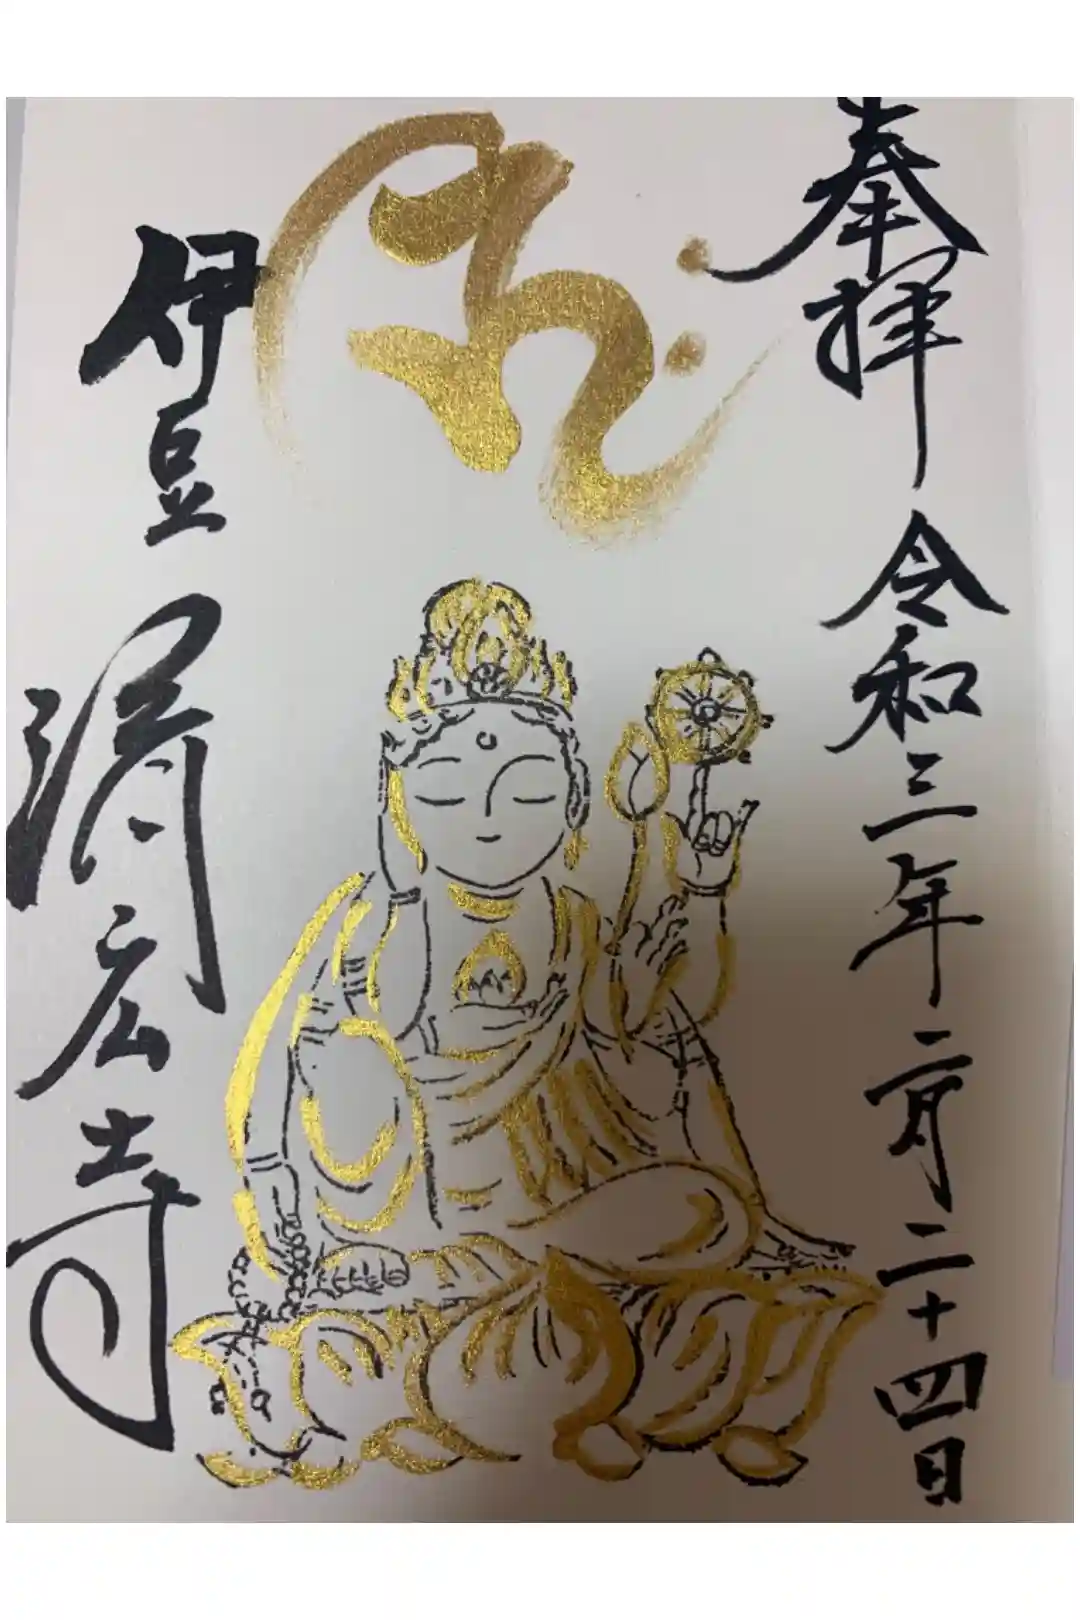 奉拝 令和三年二月二十四日
伊豆 済広寺